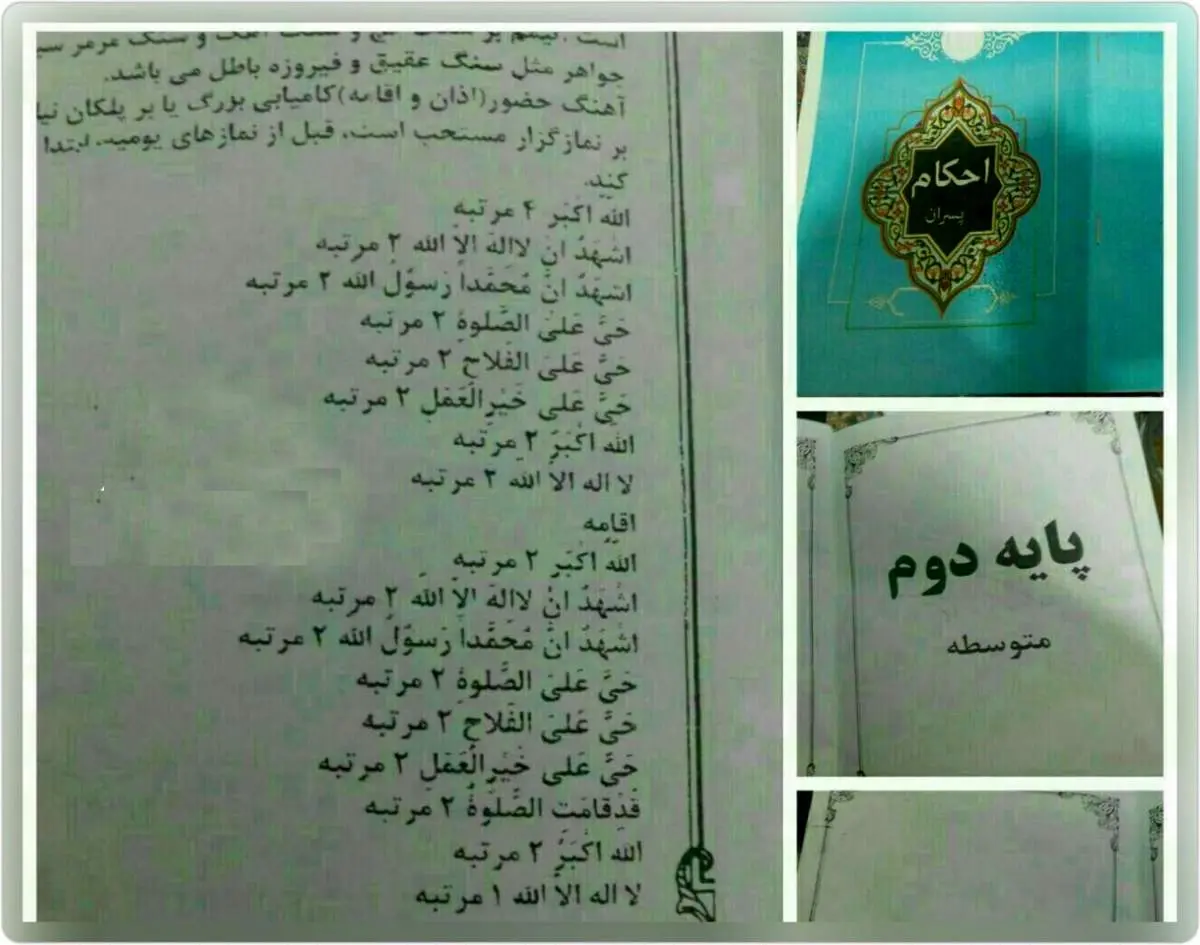 جواهر مثل سنگ عقیق و فیروزه باطل می باشد.
آهنگ حضور(اذان و اقامه)کامیابی بزرگ یا بر پلکان
بر نمازگزار مستحب است، قبل از نمازهای یومیه، ابتدا
کند.
الله اَکْبَر ۴ مرتبه
اشْهَدُ انْ لااِلهَ الاّ الله ۲ مرتبه
اشهَدُ انَّ مُحَمّداً رَسوُلُ الله ۲ مرتبه
حَیَّ عَلیَ الصَّلوةِ ۲ مرتبه
حَیَّ عَلیَ الفَلاحِ ۲ مرتبه
حَیَّ عَلی خَیْرِالْعَمَلِ ۲ مرتبه
الله اَکْبَرُ ۲ مرتبه
لا اله الاّ الله ۲ مرتبه
اقامه
الله اَکْبَر ۲ مرتبه
اشْهَدُ انْ لااِلهَ الاّ الله ۲ مرتبه
اشْهَدُ انَّ مُحَمَّداً رَسوُلُ الله ۲ مرتبه
حَیَّ عَلیَ الصَّلوةِ ۲ مرتبه
حَیَّ عَلیَ الفَلاحِ ۲ مرتبه
حَیَّ عَلی خَیْرِالْعَمَلِ ۲ مرتبه
قَدْقامَتِ الصَّلوةُ ۲ مرتبه
الله اَکْبَرُ ۲ مرتبه
لا اله الاّ الله ۱ مرتبه
احکام
پسران
پایه دوم
متوسطه